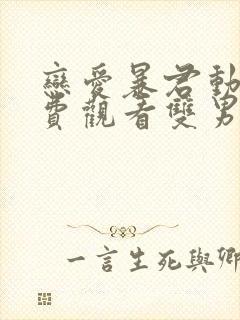 戀愛暴君動
費觀看雙男
一言生死與卿